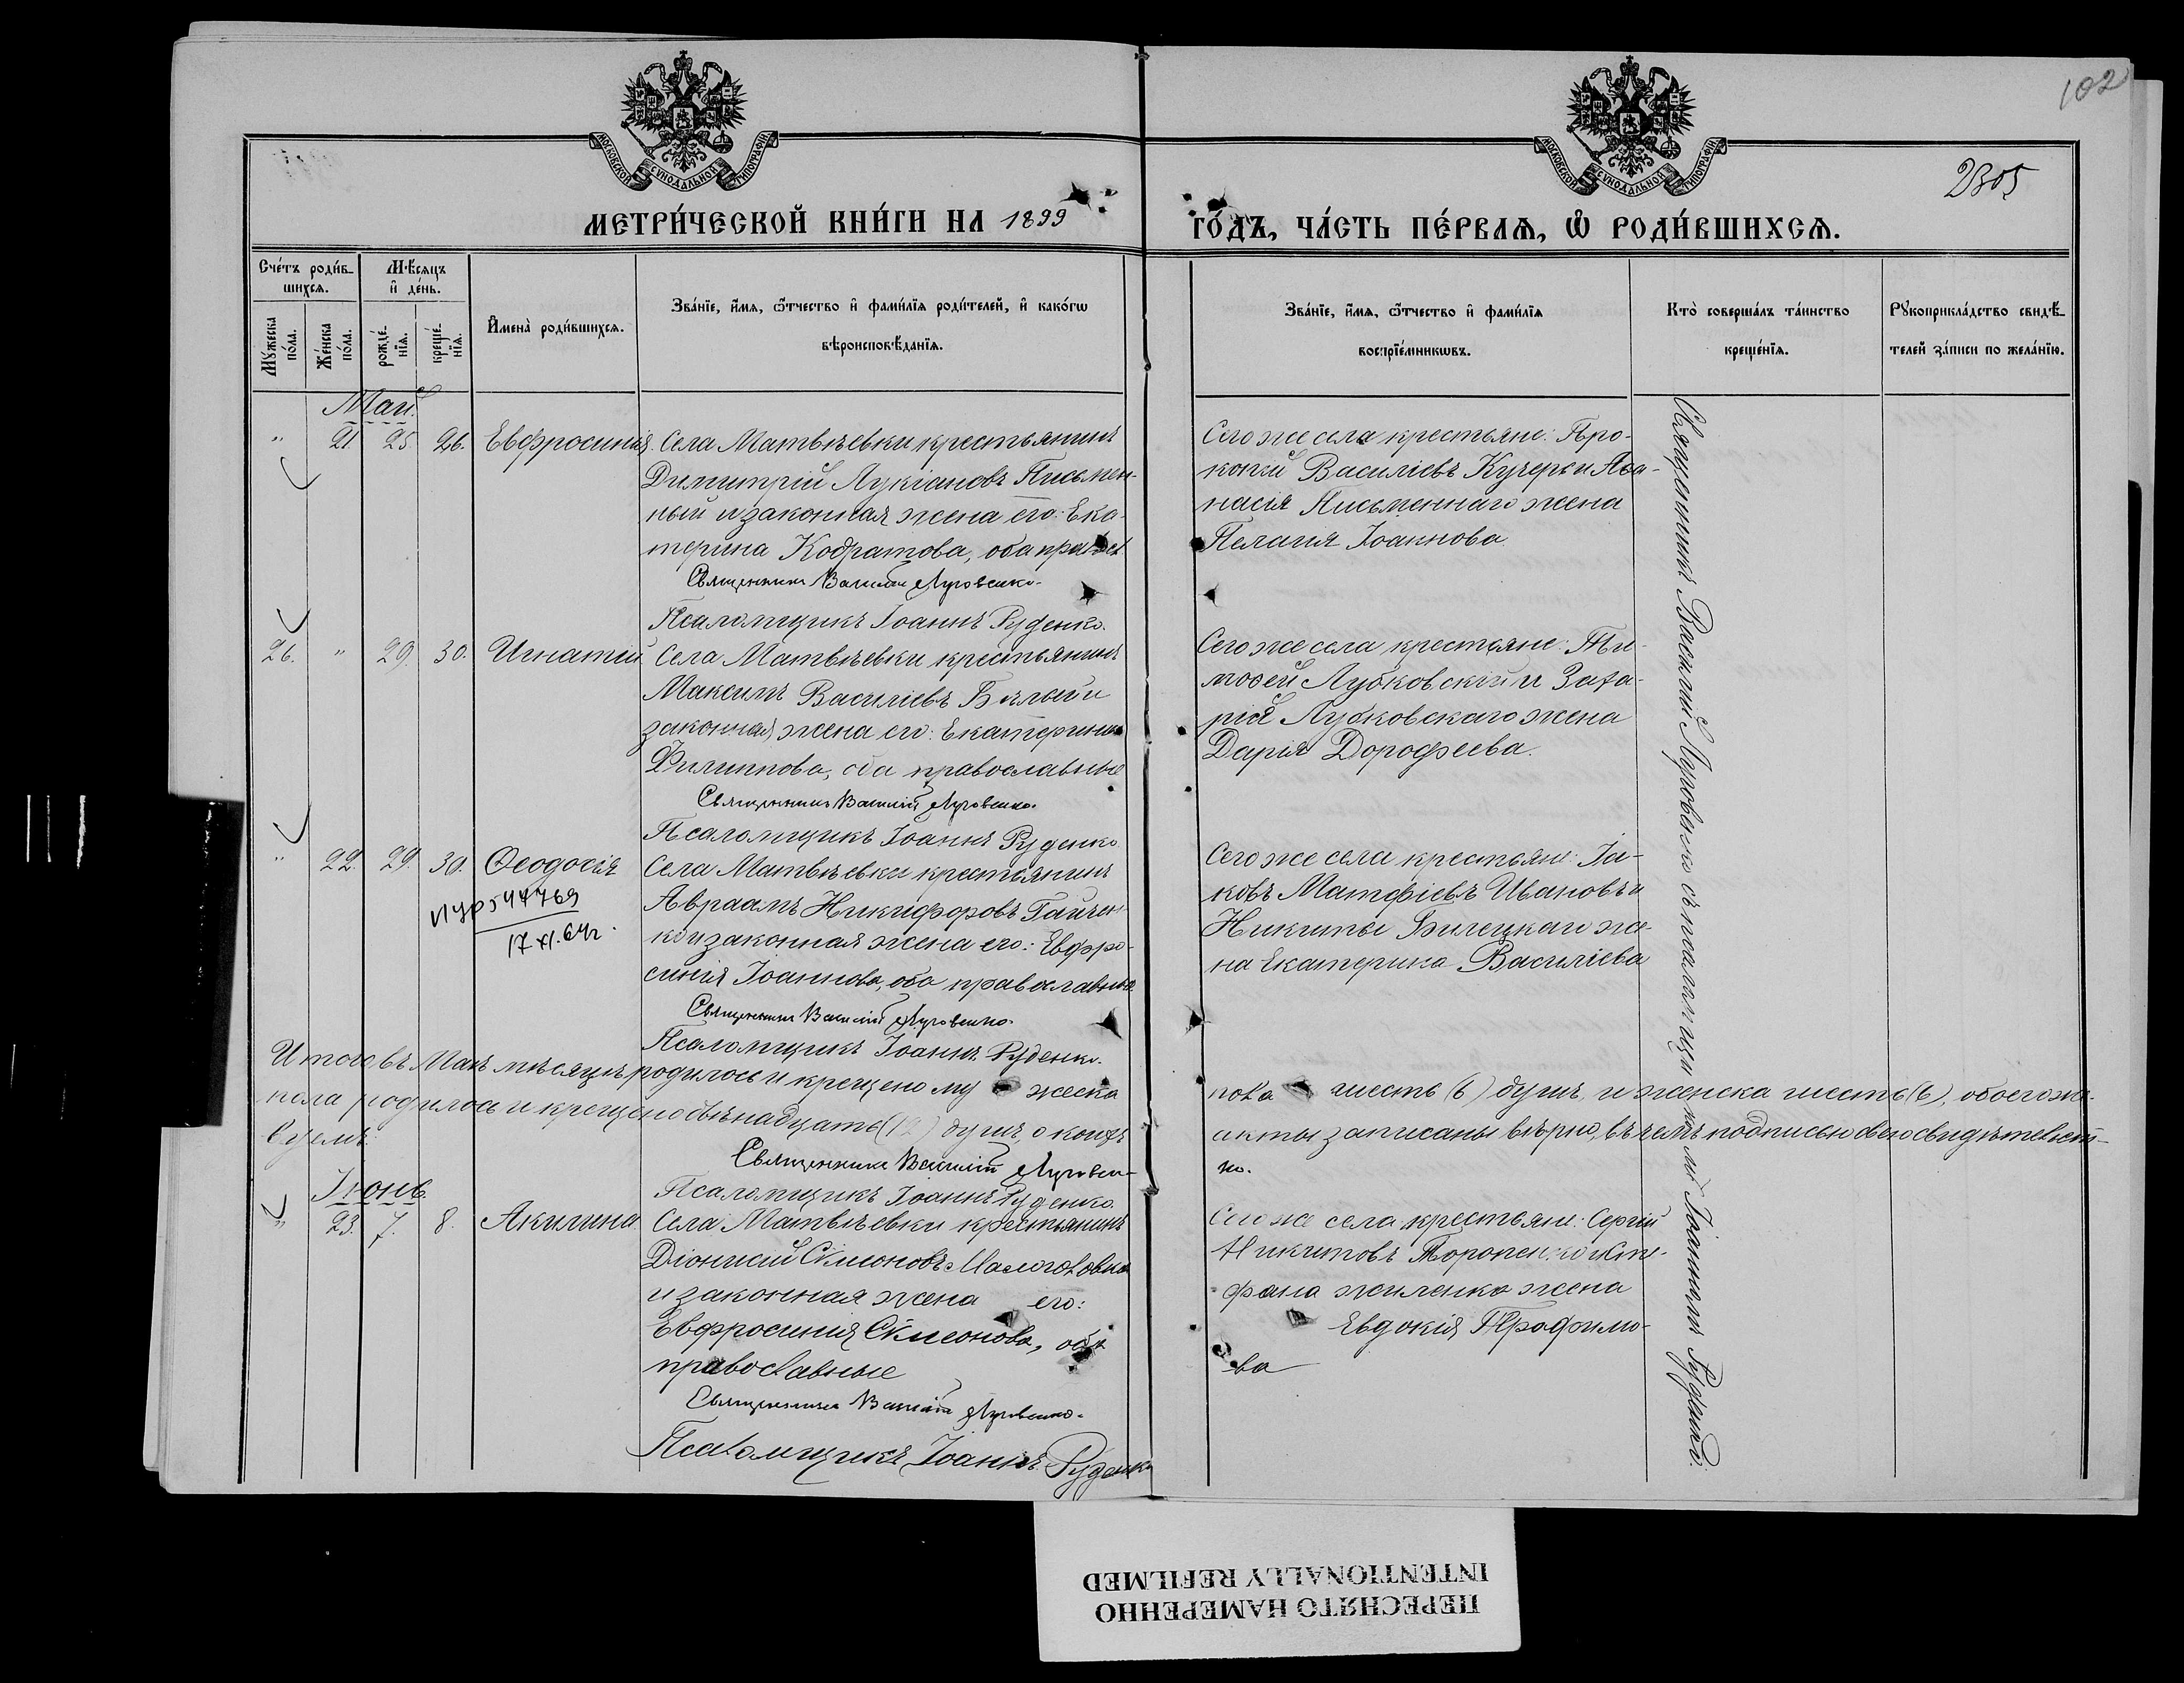 102
2305
МОСКОВСКОЙ СѴНОДАЛЬНОЙ ТИПОГРАФІИ
МОСКОВСКОЙ СѴНОДАЛЬНОЙ ТИПОГРАФІИ
МЕТРИ́ЧЕСКОЙ КНИ́ГИ НА 1899
ГО́ДЪ, ЧА́СТЬ ПЕ́РВАѦ, Ѿ РОДИ́ВШИХСѦ.
Сче́тъ роди́в-
шихсѧ.
Мꙋ́жеска по́ла.
Же́нска по́ла.
Мѣ́сяцъ
и҆ де́нь.
рожде́нїѧ.
креще́нїѧ.
И҆мена̀ роди́вшихсѧ.
Зва́нїе, и҆́мѧ, ѻ҆́тчество и҆ фами́лїѧ роди́телей, и҆ како́гѡ
вѣроисповѣ́данїѧ.
Зва́нїе, и҆́мѧ, ѻ҆́тчество и҆ фами́лїѧ
воспрїе́мникѡвъ.
Кто̀ соверша́лъ та́инство
креще́нїѧ.
Рꙋкоприкла́дство свидѣ́-
телей за́писи по жела́нїю.
Май.
" 21. 25. 26. Евфросинія. Села Матвѣевки крестьянинъ
Димитрій Лукіановъ Письмен-
ный и законная жена его: Ека-
терина Кодратова, оба правосл
Священникъ Василій Луговенко.
Псаломщикъ Іоаннъ Руденко.
Сего же села крестьяне: Про-
копій Василіевъ Кучеръ и Аѳа-
насія Письменнаго жена
Пелагія Іоаннова
26. " 29. 30. Игнатій Села Матвѣевки крестьянинъ
Максимъ Василіевъ Бѣлый и
законная жена его: Екатерина
Филиппова, оба православные
Священникъ Василій Луговенко.
Псаломщикъ Іоаннъ Руденко
Сего же села крестьяне: Ти-
моѳей Лубковскій и Заха-
рія Лубковскаго жена
Дарія Дорофеева.
" 22. 29. 30. Ѳеодосія Села Матвѣевки крестьянинъ
544769
17.XI.64г.
Авраамъ Никифоровъ Гайчен-
ко и законная жена его: Евфро-
синія Іоаннова, оба православные
Священникъ Василій Луговенко.
Псаломщикъ Іоаннъ Руденко.
Сего же села крестьяне: Іа-
ковъ Матфіевъ Ивановъ и
Никиты Билецкаго же-
на Екатерина Василіева
Итого въ Маѣ мѣсяцѣ родилось и крещено му жеска
пола шесть (6) душъ, и женска шесть (6), обоего же
пола родилось и крещено двѣнадцать (12) душъ, о коихъ
акты записаны вѣрно, въ чемъ подписью свою свидѣтельст-
вуемъ:
Священникъ Василій Луговен-
ко.
Псаломщикъ Іоаннъ Руденко.
Іюнь.
" 23. 7. 8. Акилина Села Матвѣевки крестьянинъ
Діонисій Сѵмеоновъ
и законная жена его:
Евфросинія Сѵмеонова, оба
православные
Священникъ Василій Луговенко.
Псаломщикъ Іоаннъ Руденко
Сего же села крестьяне: Сергій
Никитовъ Торопенко и Сте-
фана Жиленко жена
Евдокія Трофимо-
ва
Священникъ Василій Луговенко съ псаломщикомъ Іоанномъ Руденко.
ПЕРЕСНЯТО НАМЕРЕННО
INTENTIONALLY REFILMED